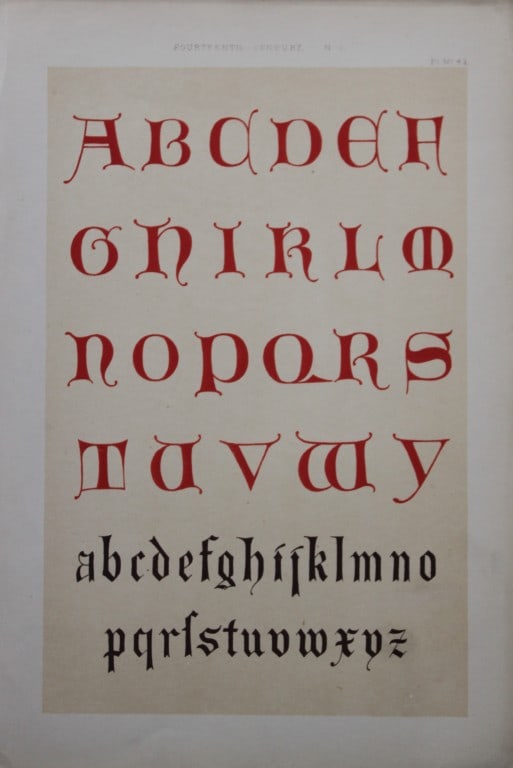 FOURTEENTH CENTURY. N
ABCDEF
GHIKLM
NOPQRS
TUVWY
abcdefghijklmno
pqrſstuvwxyz